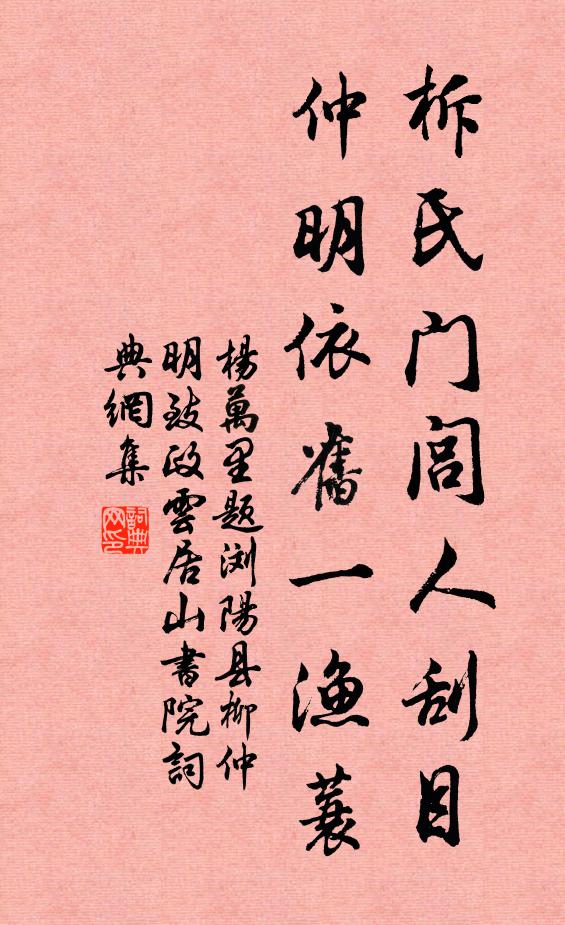 柝氏门闾人刮目
仲明依舊一漁蓑
楊萬里题浏陽县柳仲
明致政雲居山書院詞
典網集
詞典
网印